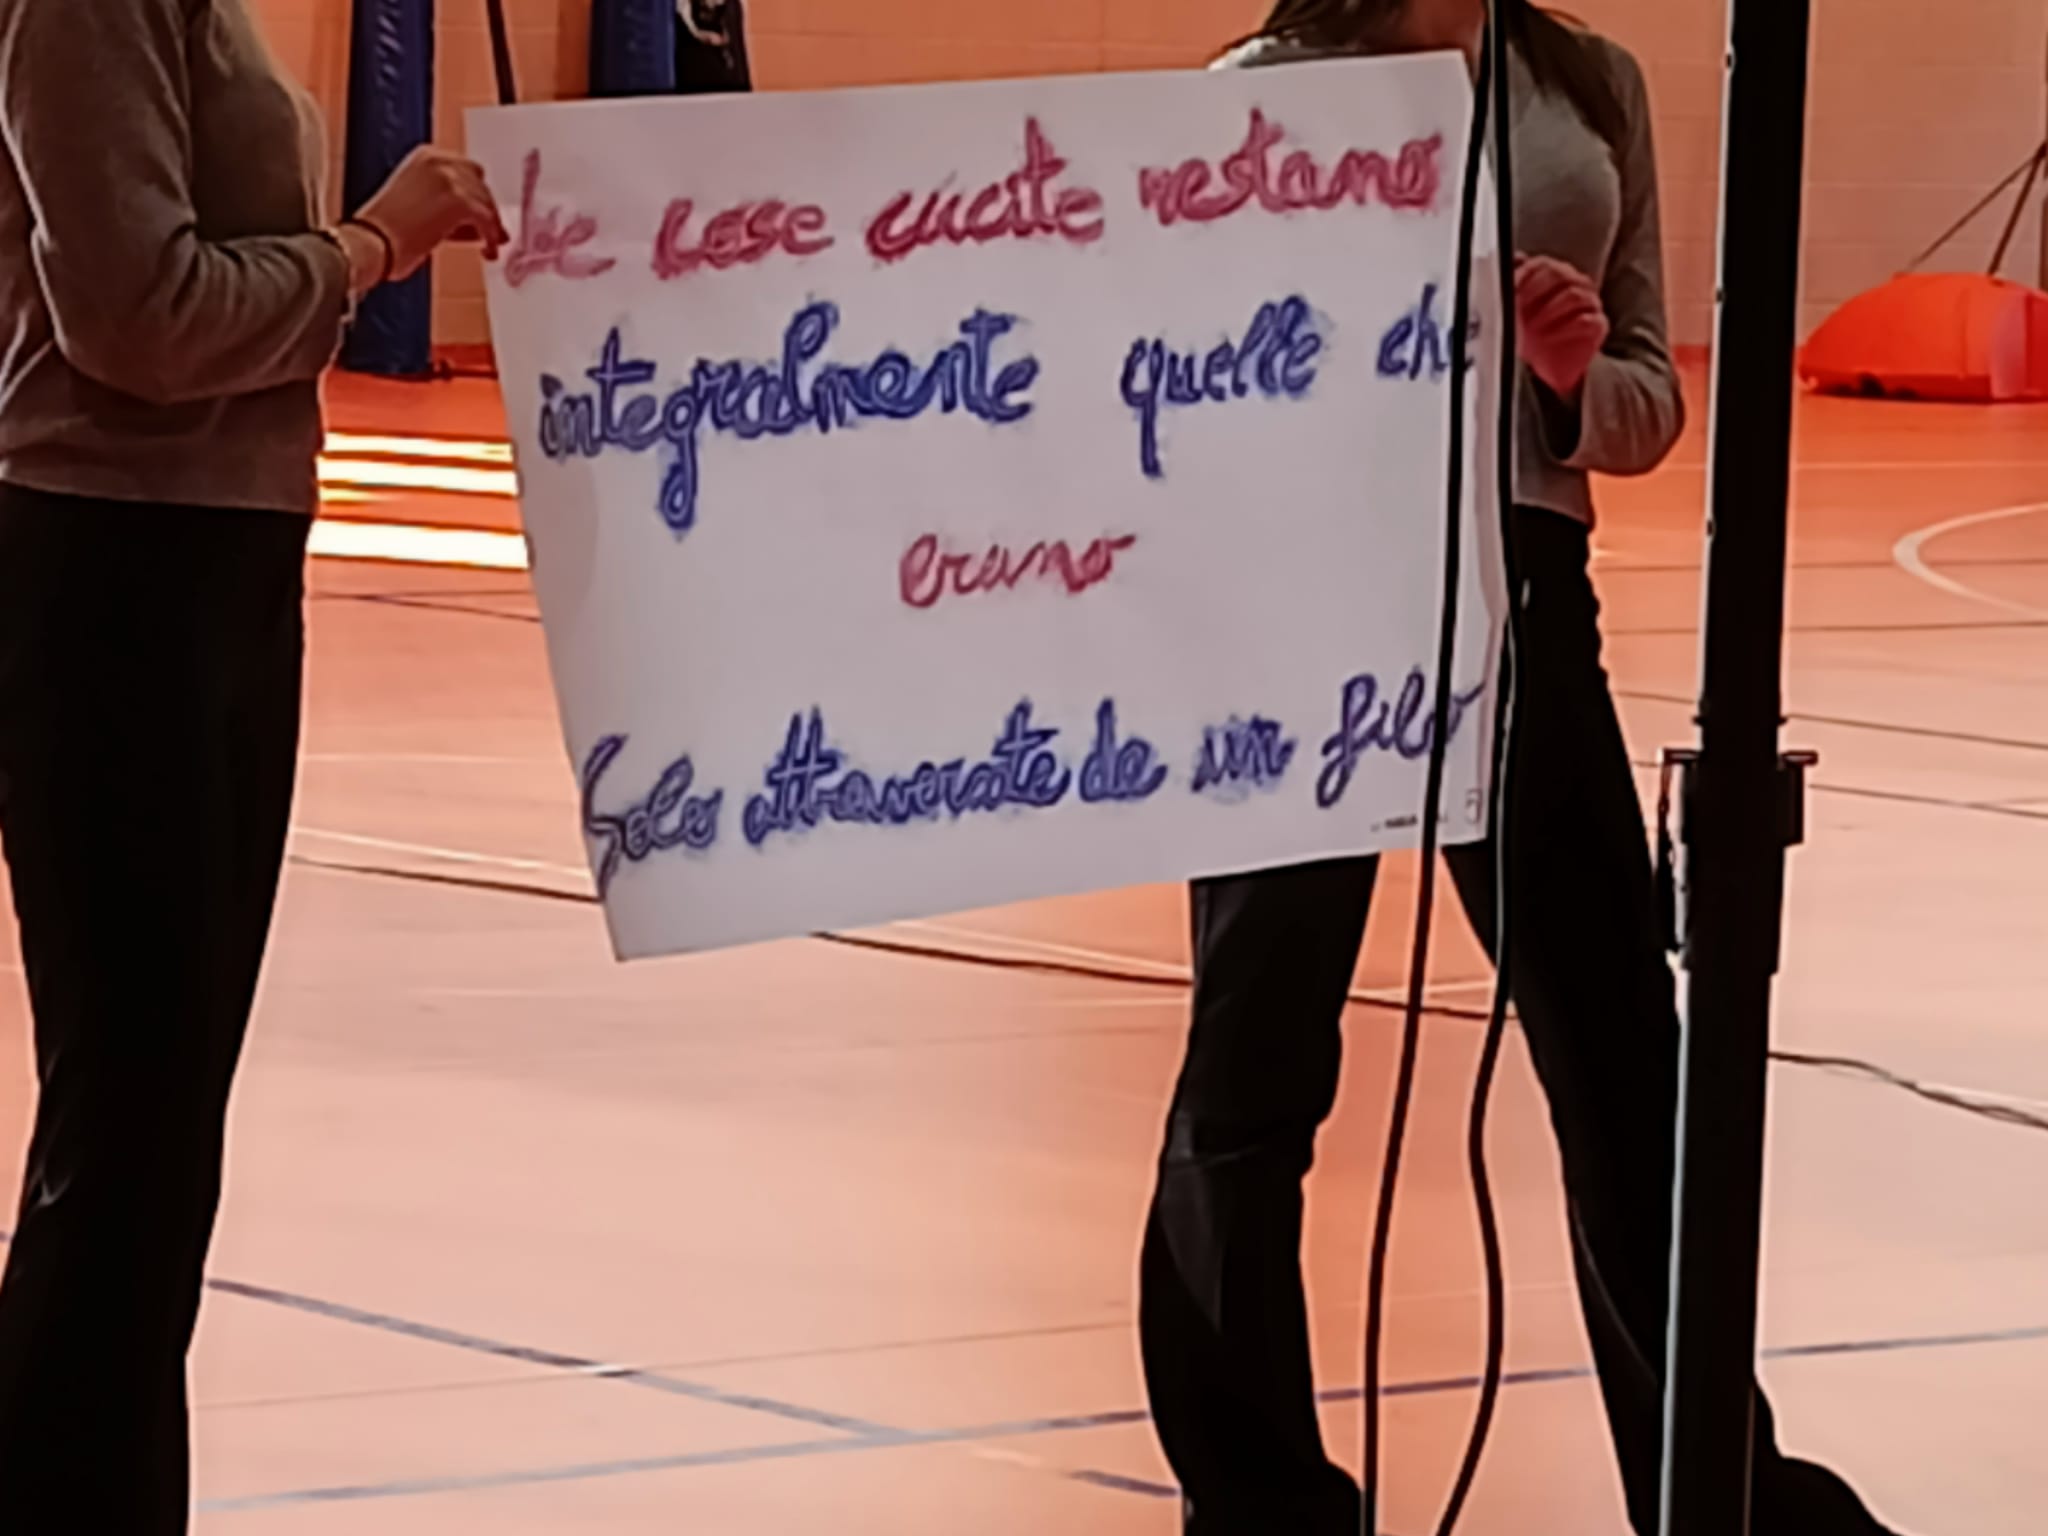 Le cose cucite restano
integralmente quelle che
erano
Solo attraversate da un filo